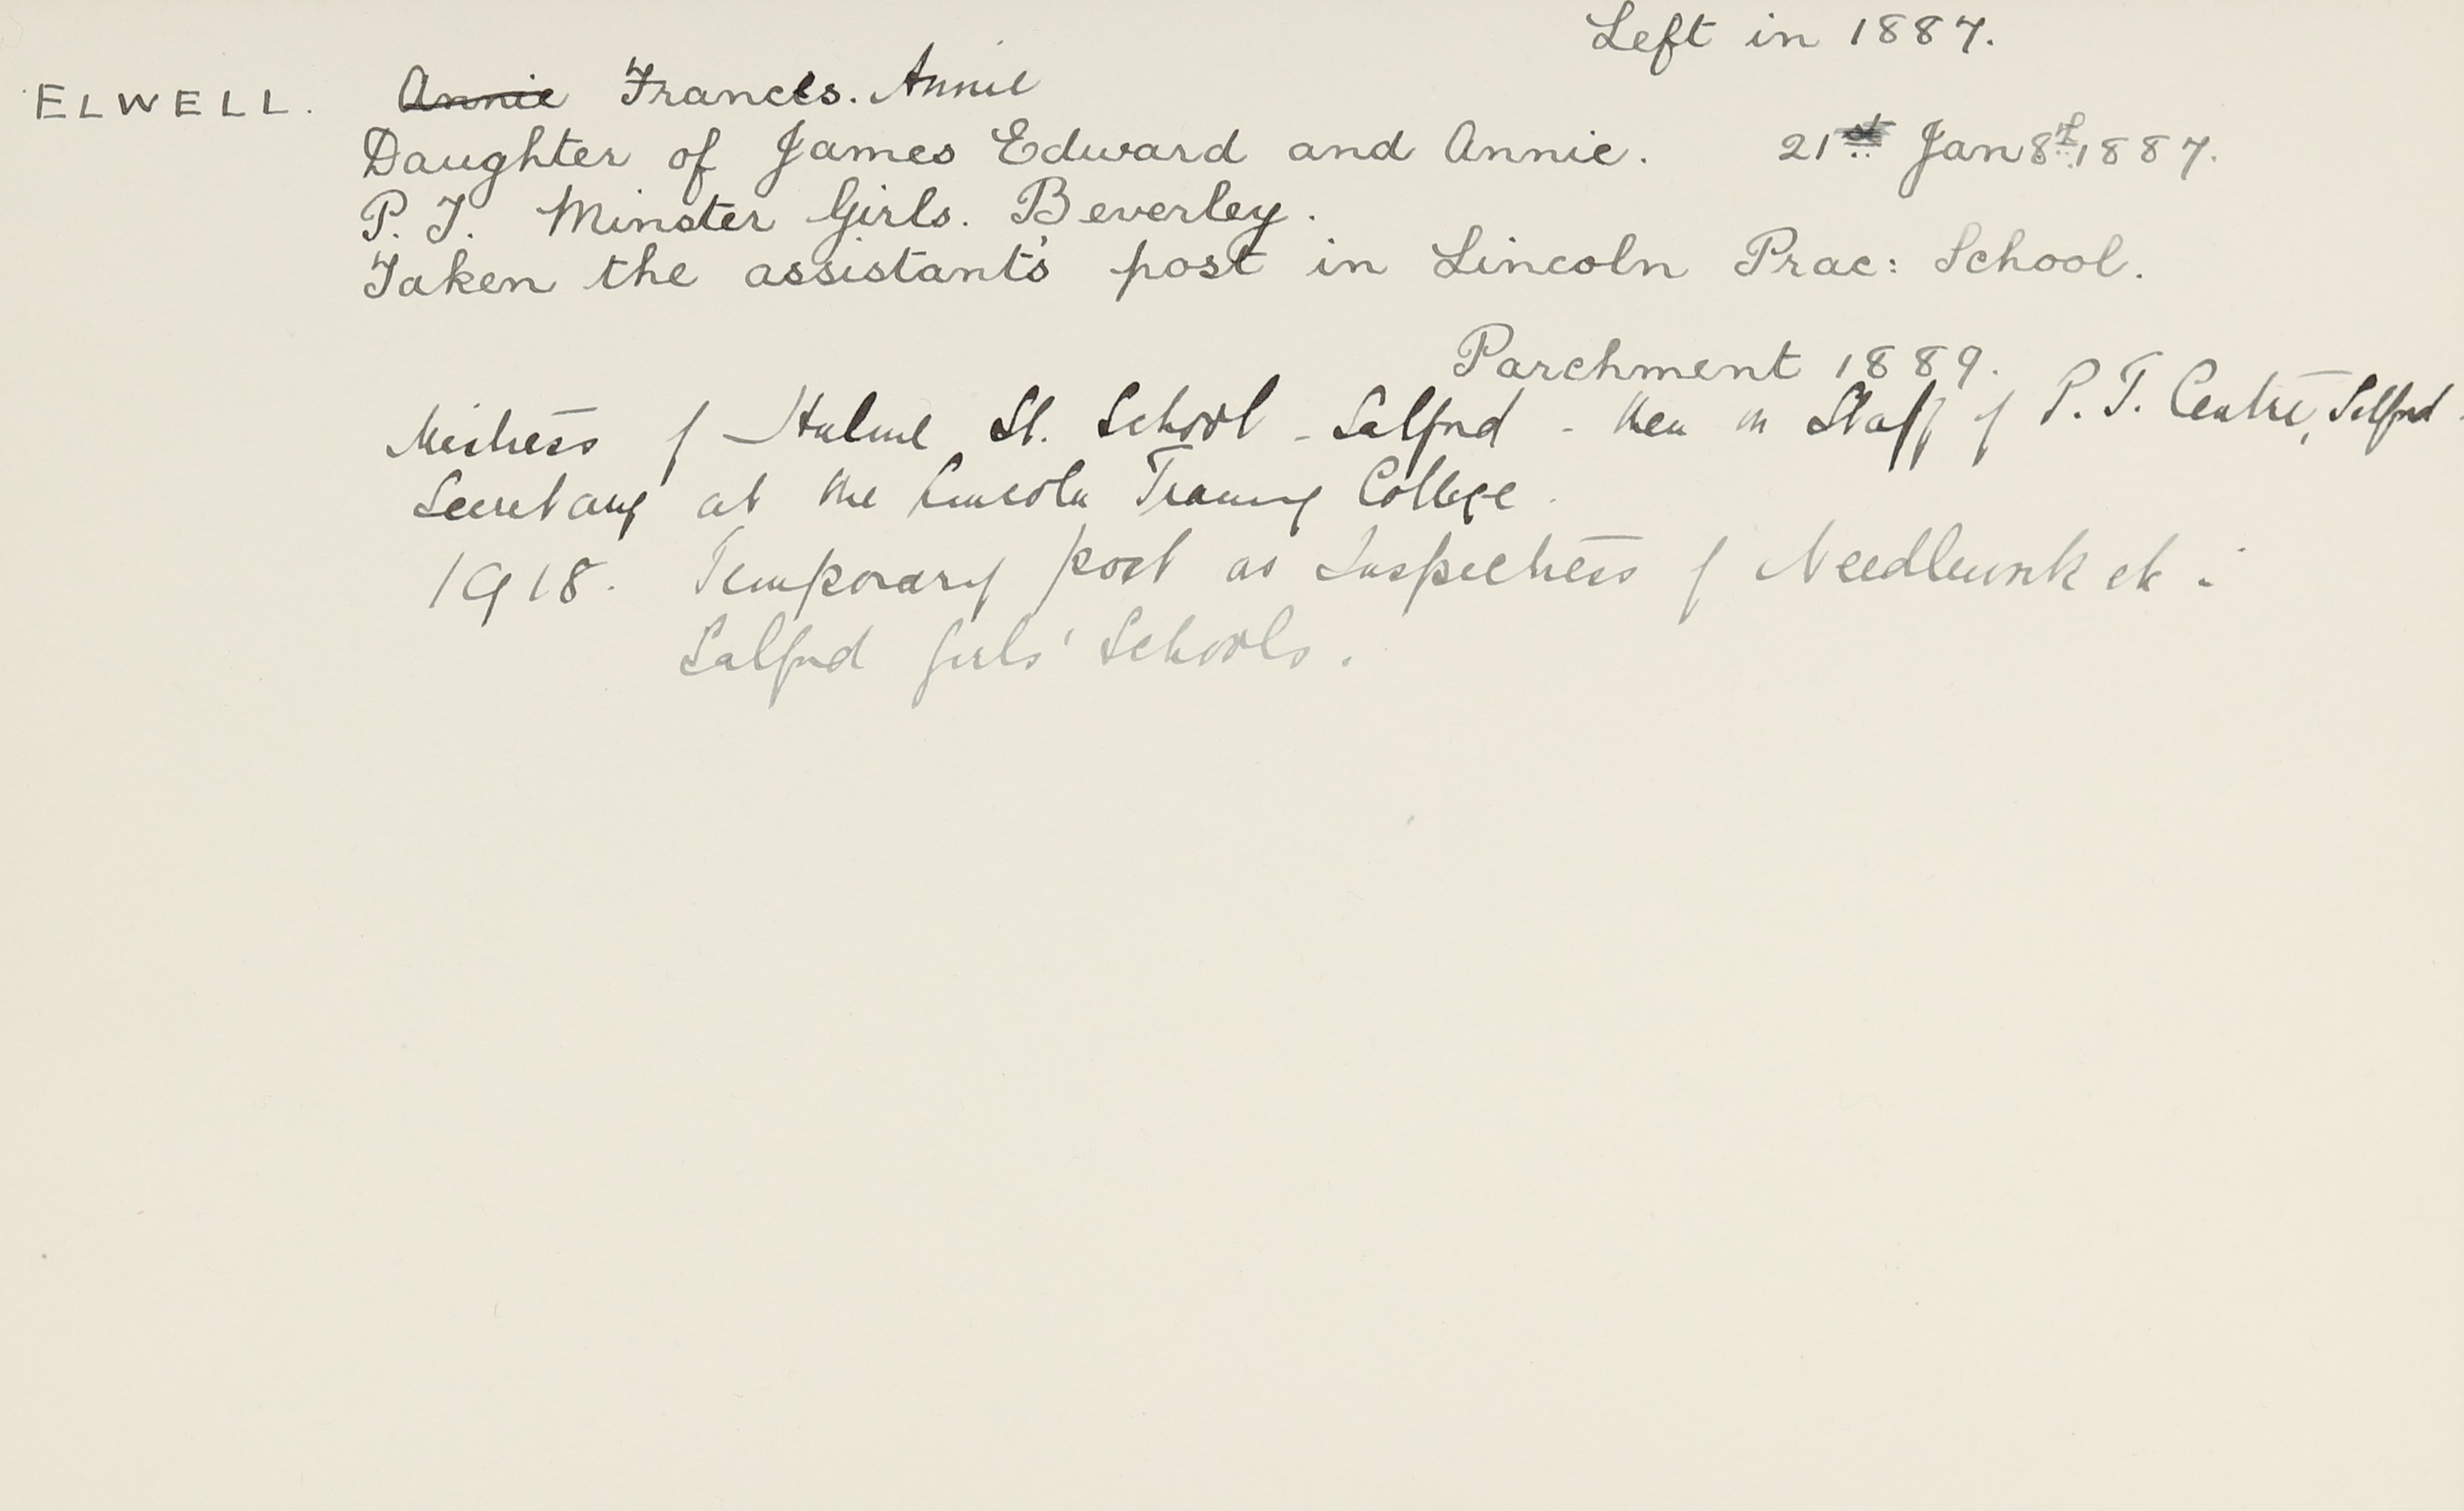 Left in 1887.
ELWELL. Annie Frances. Annie
Daughter of James Edward and Annie. 21 Jan 8th 1887.
P.T. Minster Girls. Beverley.
Taken the assistant's post in Lincoln Prac: School.
Parchment 1889.
Mistress of Hulme St. School - Salford - then on Staff of P.T. Centre, Salford.
Secretary at the Lincoln Training College.
1918. Temporary post as Inspectress of Needlework etc:
Salford Girls' Schools.